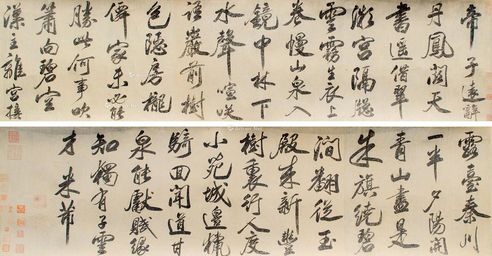 帝子遠辭
丹鳳闕天
書遥借翠
微宮隔窓
雲霧生衣上
卷幔山泉入
鏡中林下
水聲喧咲
語巖前樹
色隱房櫳
僊家未必能
勝此何事吹
簫向碧空
漢主離宮接
露臺秦川
一半夕陽開
青山盡是
朱旗繞碧
澗翻從玉
殿來新豐
樹裏行人度
小苑城邊獵
騎回聞道甘
泉能獻賦懸
知獨有子雲
才 米芾